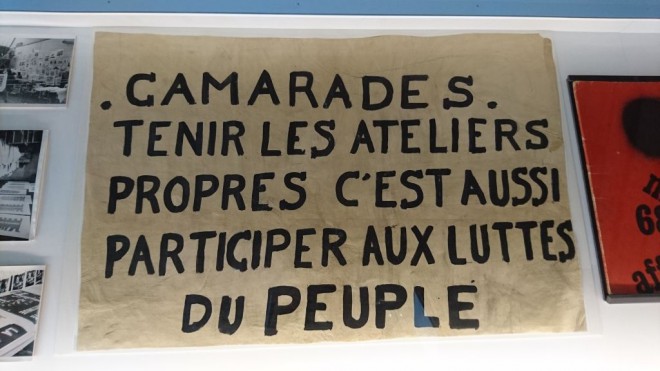 .CAMARADES.
TENIR LES ATELIERS
PROPRES C'EST AUSSI
PARTICIPER AUX LUTTES
DU PEUPLE